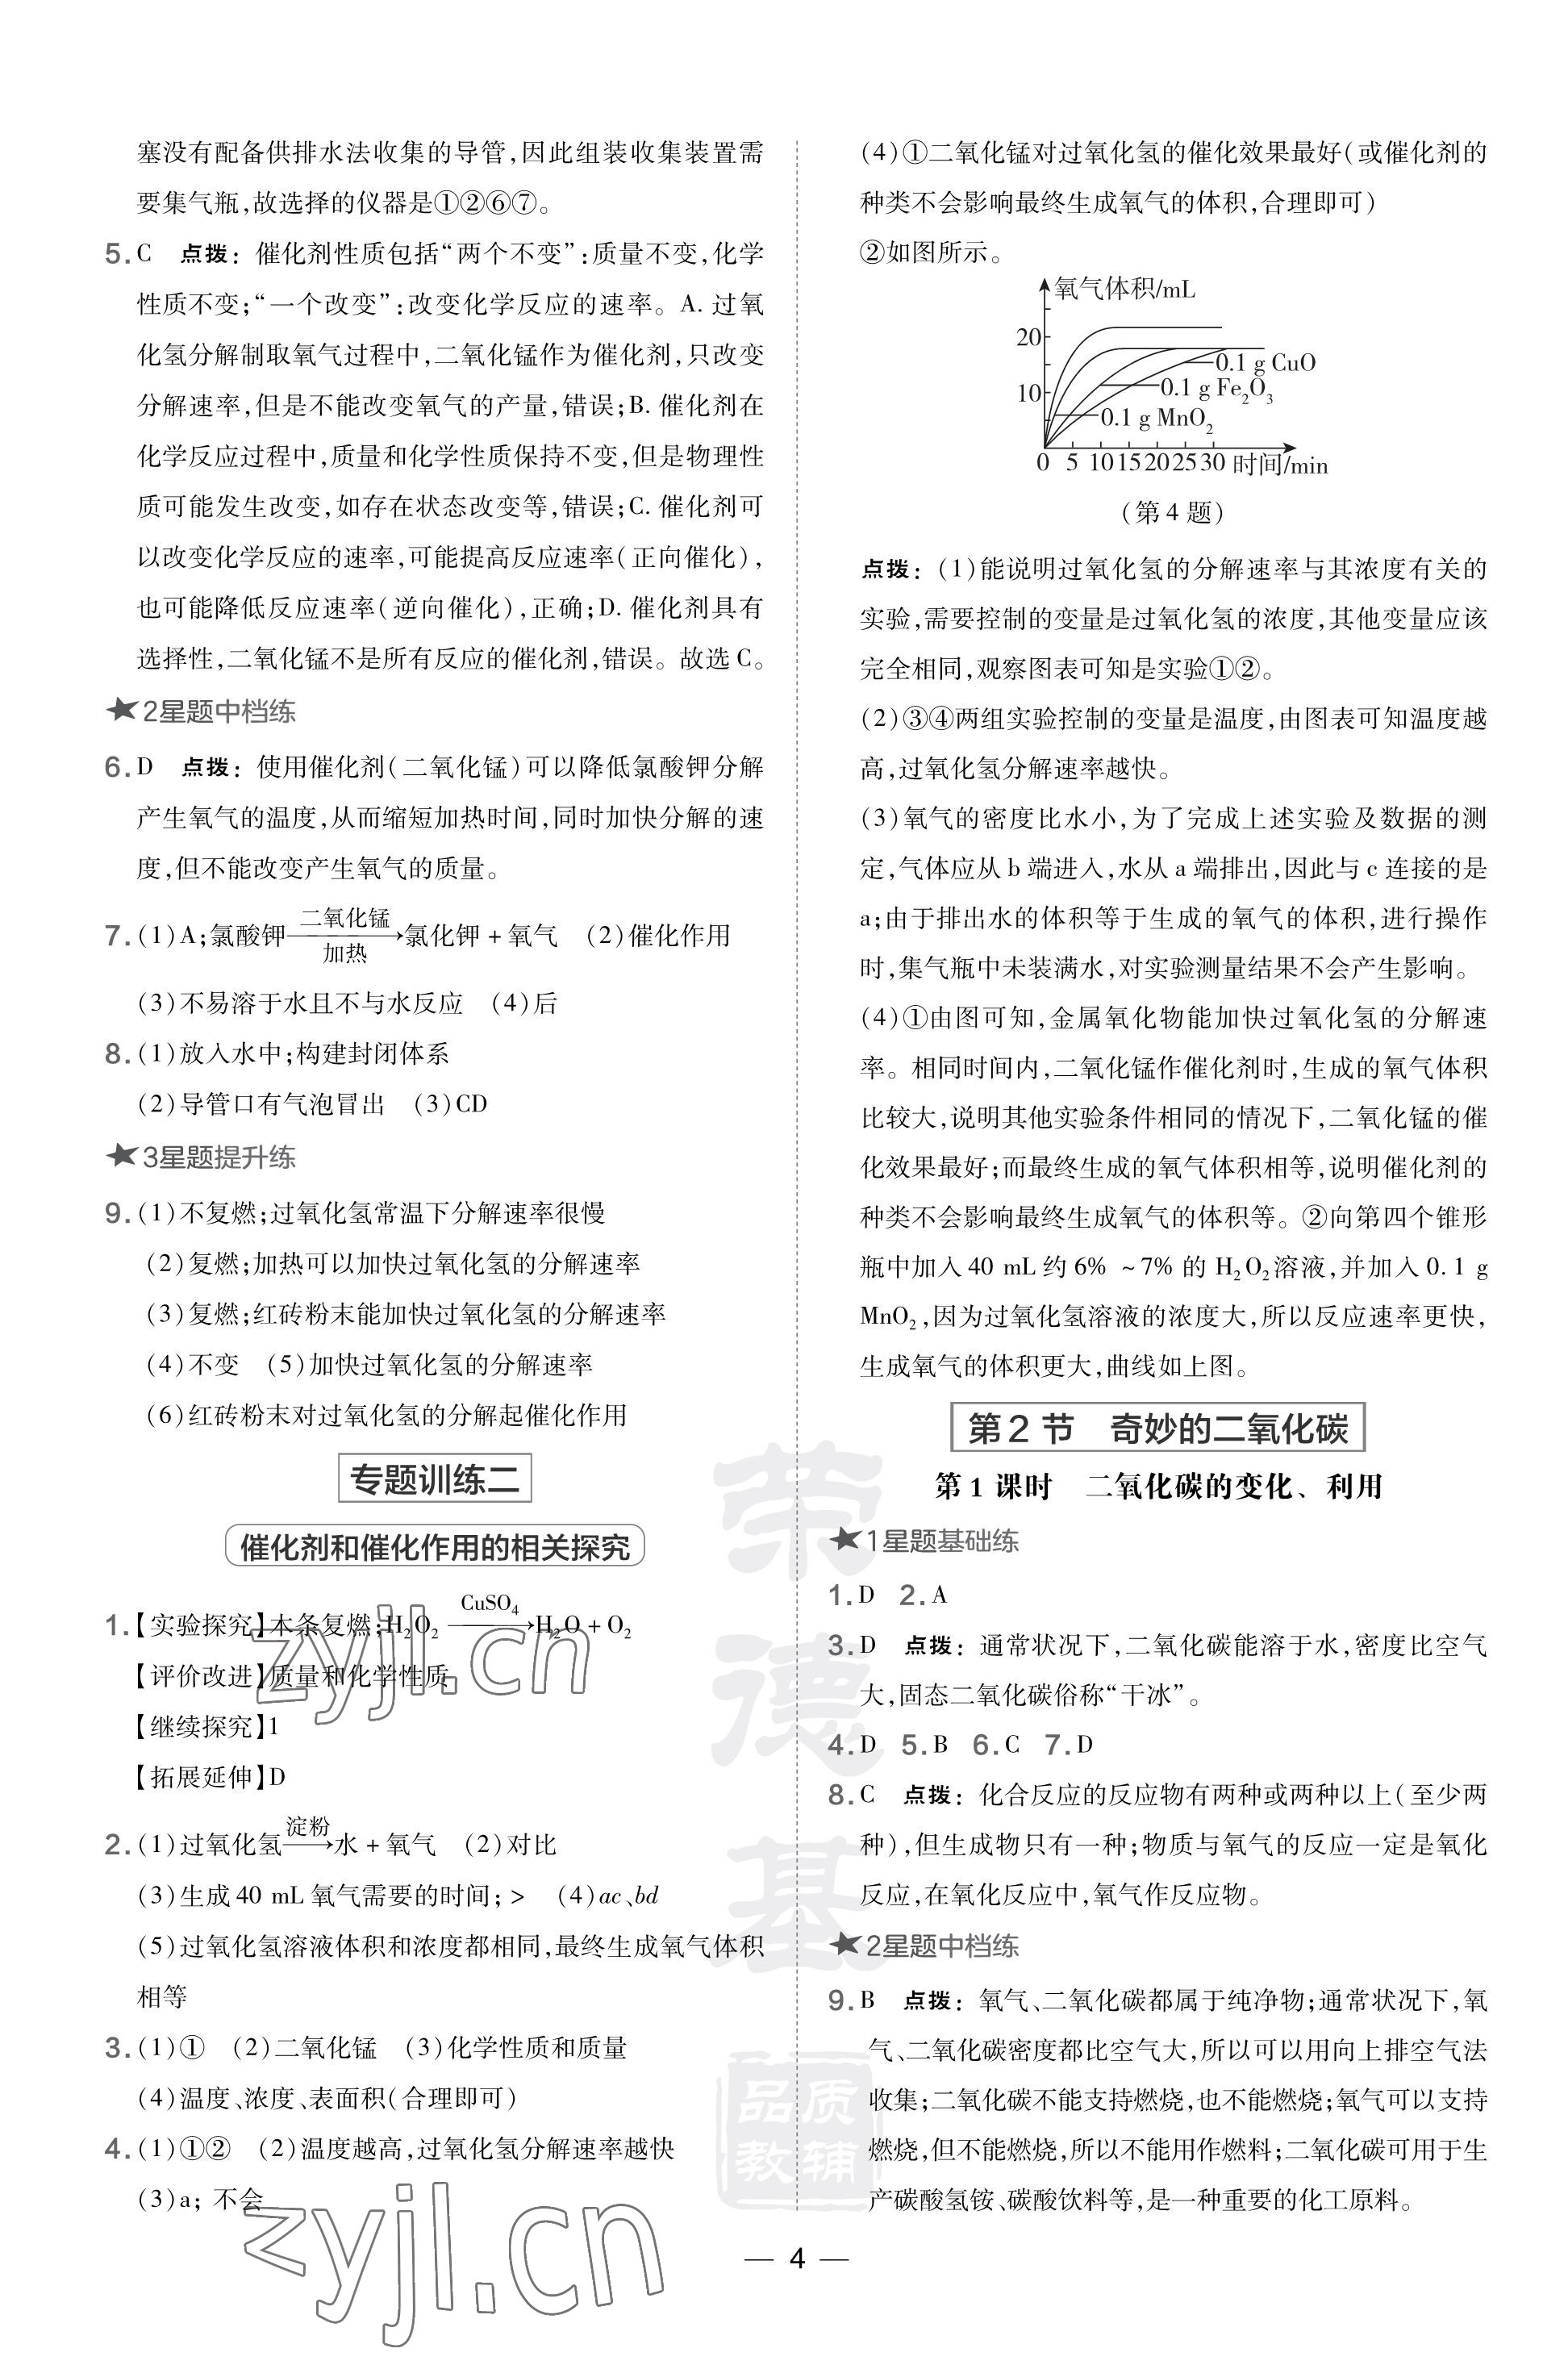 塞没有配备供排水法收集的导管,因此组装收集装置需
要集气瓶,故选择的仪器是①②⑥⑦。
5. C 点拨：催化剂性质包括“两个不变”:质量不变,化学
性质不变;“一个改变”:改变化学反应的速率。A. 过氧
化氢分解制取氧气过程中,二氧化锰作为催化剂,只改变
分解速率,但是不能改变氧气的产量,错误;B. 催化剂在
化学反应过程中,质量和化学性质保持不变,但是物理性
质可能发生改变,如存在状态改变等,错误;C. 催化剂可
以改变化学反应的速率,可能提高反应速率(正向催化),
也可能降低反应速率(逆向催化),正确;D. 催化剂具有
选择性,二氧化锰不是所有反应的催化剂,错误。故选 C。
★2星题中档练
6. D 点拨：使用催化剂(二氧化锰)可以降低氯酸钾分解
产生氧气的温度,从而缩短加热时间,同时加快分解的速
度,但不能改变产生氧气的质量。
二氧化锰
7. (1)A;氯酸钾———→氯化钾 + 氧气 (2)催化作用
加热
(3)不易溶于水且不与水反应 (4)后
8. (1)放入水中;构建封闭体系
(2)导管口有气泡冒出 (3)CD
★3星题提升练
9. (1)不复燃;过氧化氢常温下分解速率很慢
(2)复燃;加热可以加快过氧化氢的分解速率
(3)复燃;红砖粉末能加快过氧化氢的分解速率
(4)不变 (5)加快过氧化氢的分解速率
(6)红砖粉末对过氧化氢的分解起催化作用
专题训练二
催化剂和催化作用的相关探究
CuSO₄
1.【实验探究】木条复燃;H₂O₂———→H₂O + O₂
【评价改进】质量和化学性质
【继续探究】1
【拓展延伸】D
淀粉
2. (1)过氧化氢——→水 + 氧气 (2)对比
(3)生成 40 mL 氧气需要的时间; > (4)ac、bd
(5)过氧化氢溶液体积和浓度都相同,最终生成氧气体积
相等
3. (1)① (2)二氧化锰 (3)化学性质和质量
(4)温度、浓度、表面积(合理即可)
4. (1)①② (2)温度越高,过氧化氢分解速率越快
(3)a; 不会
(4)①二氧化锰对过氧化氢的催化效果最好(或催化剂的
种类不会影响最终生成氧气的体积,合理即可)
②如图所示。
氧气体积/mL
20
0.1 g CuO
10
0.1 g Fe₂O₃
0.1 g MnO₂
0 5 10 15 20 25 30 时间/min
(第 4 题)
点拨：(1)能说明过氧化氢的分解速率与其浓度有关的
实验,需要控制的变量是过氧化氢的浓度,其他变量应该
完全相同,观察图表可知是实验①②。
(2)③④两组实验控制的变量是温度,由图表可知温度越
高,过氧化氢分解速率越快。
(3)氧气的密度比水小,为了完成上述实验及数据的测
定,气体应从 b 端进入,水从 a 端排出,因此与 c 连接的是
a;由于排出水的体积等于生成的氧气的体积,进行操作
时,集气瓶中未装满水,对实验测量结果不会产生影响。
(4)①由图可知,金属氧化物能加快过氧化氢的分解速
率。相同时间内,二氧化锰作催化剂时,生成的氧气体积
比较大,说明其他实验条件相同的情况下,二氧化锰的催
化效果最好;而最终生成的氧气体积相等,说明催化剂的
种类不会影响最终生成氧气的体积等。②向第四个锥形
瓶中加入 40 mL 约 6% ~7% 的 H₂O₂溶液,并加入 0. 1 g
MnO₂,因为过氧化氢溶液的浓度大,所以反应速率更快,
生成氧气的体积更大,曲线如上图。
第 2 节 奇妙的二氧化碳
第 1 课时 二氧化碳的变化、利用
★1星题基础练
1. D 2. A
3. D 点拨：通常状况下,二氧化碳能溶于水,密度比空气
大,固态二氧化碳俗称“干冰”。
4. D 5. B 6. C 7. D
8. C 点拨：化合反应的反应物有两种或两种以上(至少两
种),但生成物只有一种;物质与氧气的反应一定是氧化
反应,在氧化反应中,氧气作反应物。
★2星题中档练
9. B 点拨：氧气、二氧化碳都属于纯净物;通常状况下,氧
气、二氧化碳密度都比空气大,所以可以用向上排空气法
收集;二氧化碳不能支持燃烧,也不能燃烧;氧气可以支持
燃烧,但不能燃烧,所以不能用作燃料;二氧化碳可用于生
产碳酸氢铵、碳酸饮料等,是一种重要的化工原料。
荣德基
品质
教辅
zyjl.cn
zyjl.cn
— 4 —